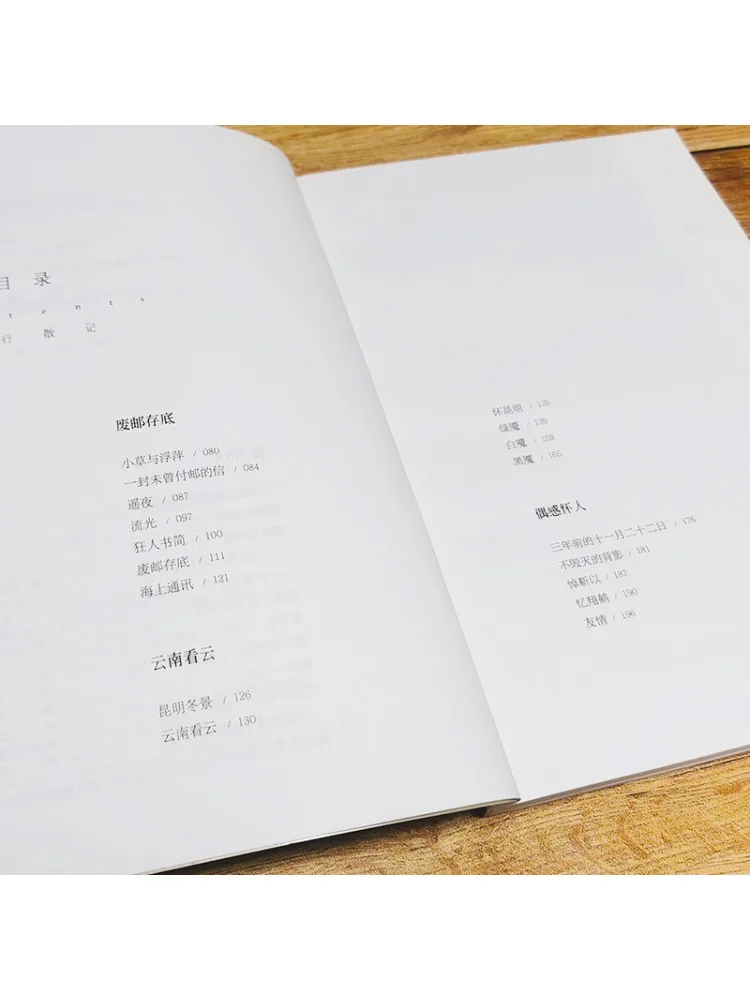 目 录
tents
行 散 记
废邮存底
小草与浮萍 / 080
一封未曾付邮的信 / 084
遥夜 / 087
流光 / 097
狂人书简 / 100
废邮存底 / 111
海上通讯 / 121
云南看云
昆明冬景 / 126
云南看云 / 130
怀昆明 / 135
绿魇 / 139
白魇 / 159
黑魇 / 165
偶感怀人
三年前的十一月二十二日 / 176
不毁灭的背影 / 181
悼靳以 / 187
忆翔鹤 / 190
友情 / 196